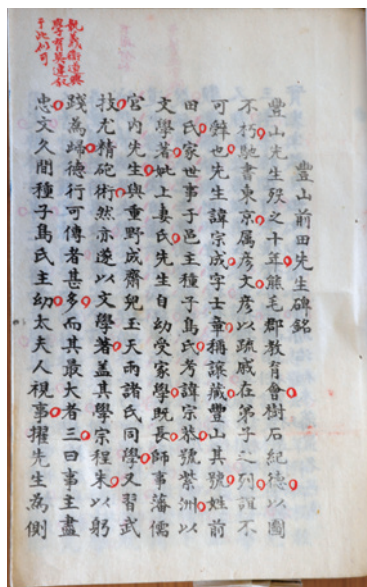 豐山前田先生碑銘
豐山先生歿之十年熊毛郡教育會樹石紀德以圖
不朽馳書東京属彦文彦以疏戚在第子之列誼不
可辭也先生諱宗成字士章稱讓蔵豐山其號姓前
田氏家世事于邑主種子島氏考諱宗恭號紫洲以
文學著妣上妻氏先生自幼受家學既長師事藩儒
宮内先生與重野成齋兒玉天雨諸氏同學又習武
技尤精砲術然亦遂以文學著盖其學宗程朱以躬
踐為歸德行可傳者甚多而其最大者三曰事主盡
忠文久間種子島氏主幼太夫人視事擢先生為側
執義衛道興
學育英
于此似可